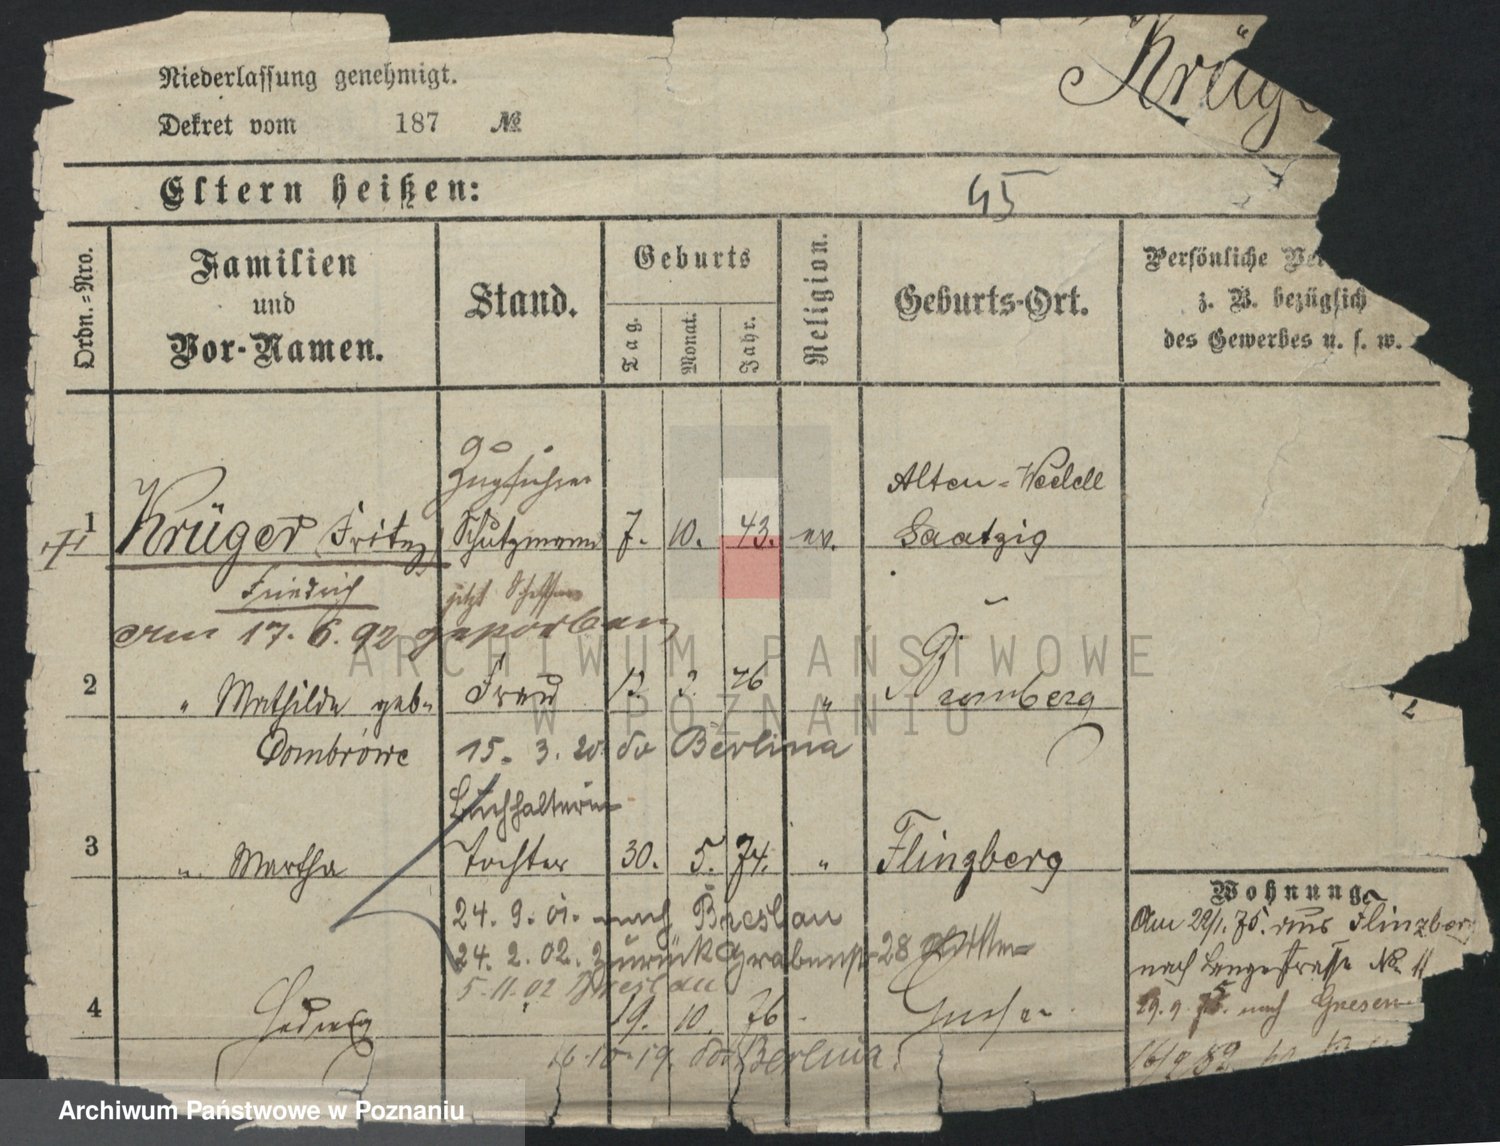 Krüg
Niederlassung genehmigt.
Dekret vom 187 №
Eltern heißen:
45
Ordn.-Nro.
Familien
und
Vor-Namen.
Stand.
Geburts
Tag.
Monat.
Jahr.
Religion.
Geburts-Ort.
Persönliche Ve
z. B. bezüglich
des Gewerbes u. s. w.
Zugführer
Alten-Wedell
1 Krüger Fritz Schutzmann 7. 10. 43. ev. Saatzig
Friedrich jetzt
Am 17. 6. 92 gestorben
2 " Mathilde geb. Frau 3. 46 " Bromberg
Dombrowe 15. 3. 20 do Berlina
Buchhalterin
3 " Martha Tochter 30. 5. 74. " Flinzberg
24. 9. 01. nach Breslau
24. 2. 02. zurück Grabenstr 28
5. 11. 02 Breslau
4 Hedwig 19. 10. 76 Gnesen
16.10.19. do Berlina
Wohnung
Am 29/1. 75. aus Flinzberg
nach Langestrasse No. 11
29. 9. 75. nach Gnesen
ARCHIWUM PAŃSTWOWE
W POZNANIU
Archiwum Państwowe w Poznaniu